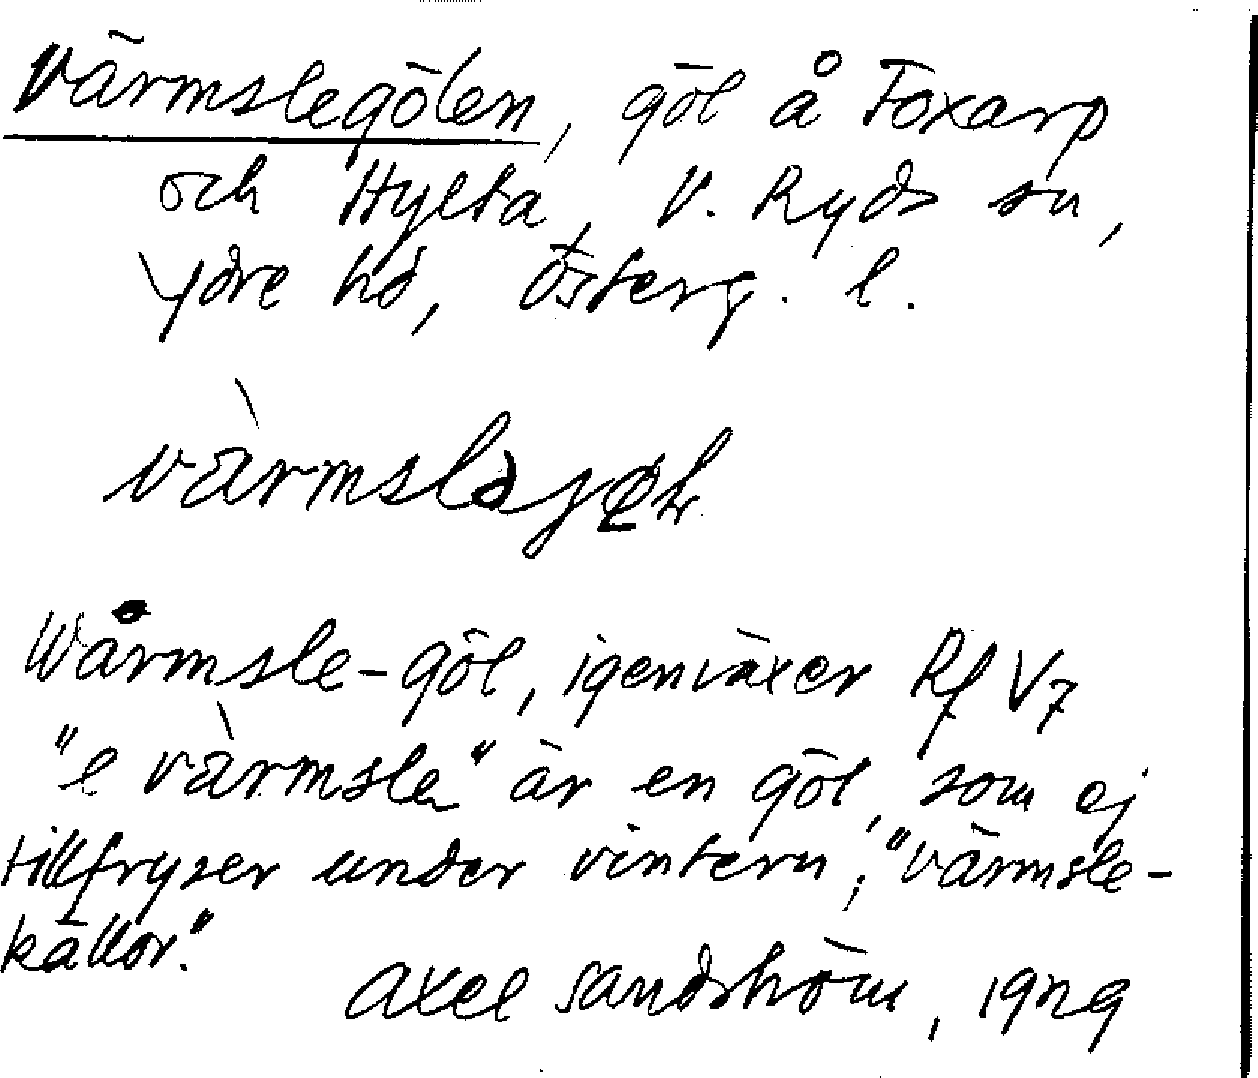 Värmslegölen, göl å Foxarp
och Hylta, V. Ryds sn,
Ydre hd, Österg. l.
Wärmsle-göl, igenväxer Rf V7
"e värmsle" är en göl, som ej
tillfryser under vintern; "värmsle-
källor".
Axel Sandström, 1929